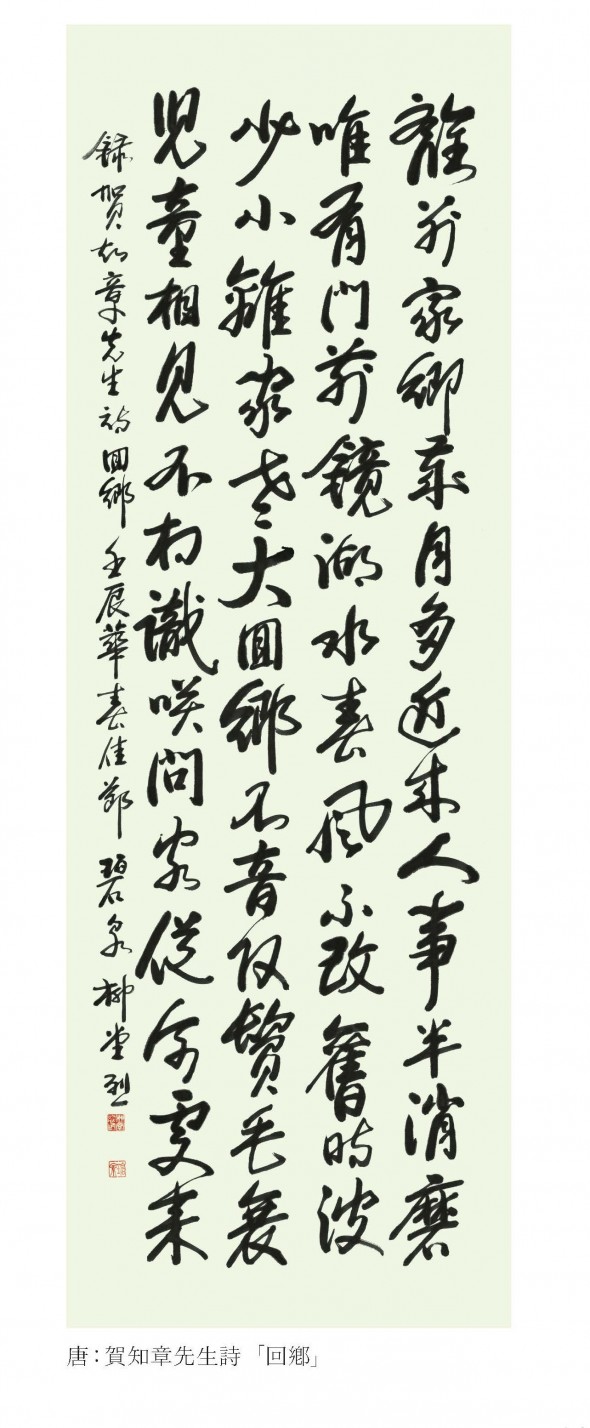 離別家鄉歲月多近來人事半消磨
唯有門前鏡湖水春風不改舊時波
少小離家老大回鄉不音改鬢毛衰
兒童相見不相識咲問客從何處来
録賀知章先生詩回鄉 壬辰華春佳節 碧泉 柳堂烈
唐 : 賀知章先生詩 「回鄕」